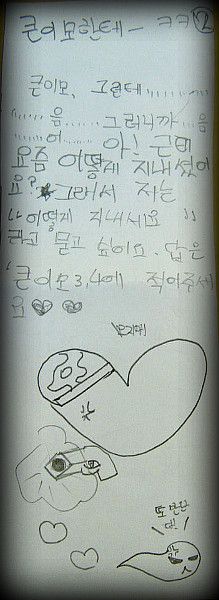 큰이모한테 - ㅋㅋ ②
큰이모, 그런데,,,,,,,
,,,,,,음,,,,,,그러니까,,,,,,음
,,,,,,어,,,,,,아! 근데
요즘 어떻게 지내셨어
요? 그래서 저는
"어떻게 지내세요"
라고 묻고 싶어요. 답은
'큰이모 3, 4에 적어주세
요 ♡♡